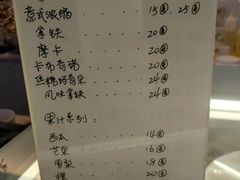 意式浓缩 ..... 15元. 25元
拿铁 ..... 20元
摩卡 ..... 20元
卡布奇诺 ..... 20元
焦糖玛奇朵 ... 24元
风味拿铁 .... 24元
果汁系列:
西瓜 ..... 14元
芒果 ..... 16元
雪梨 ..... 18元
橙 ..... 20元